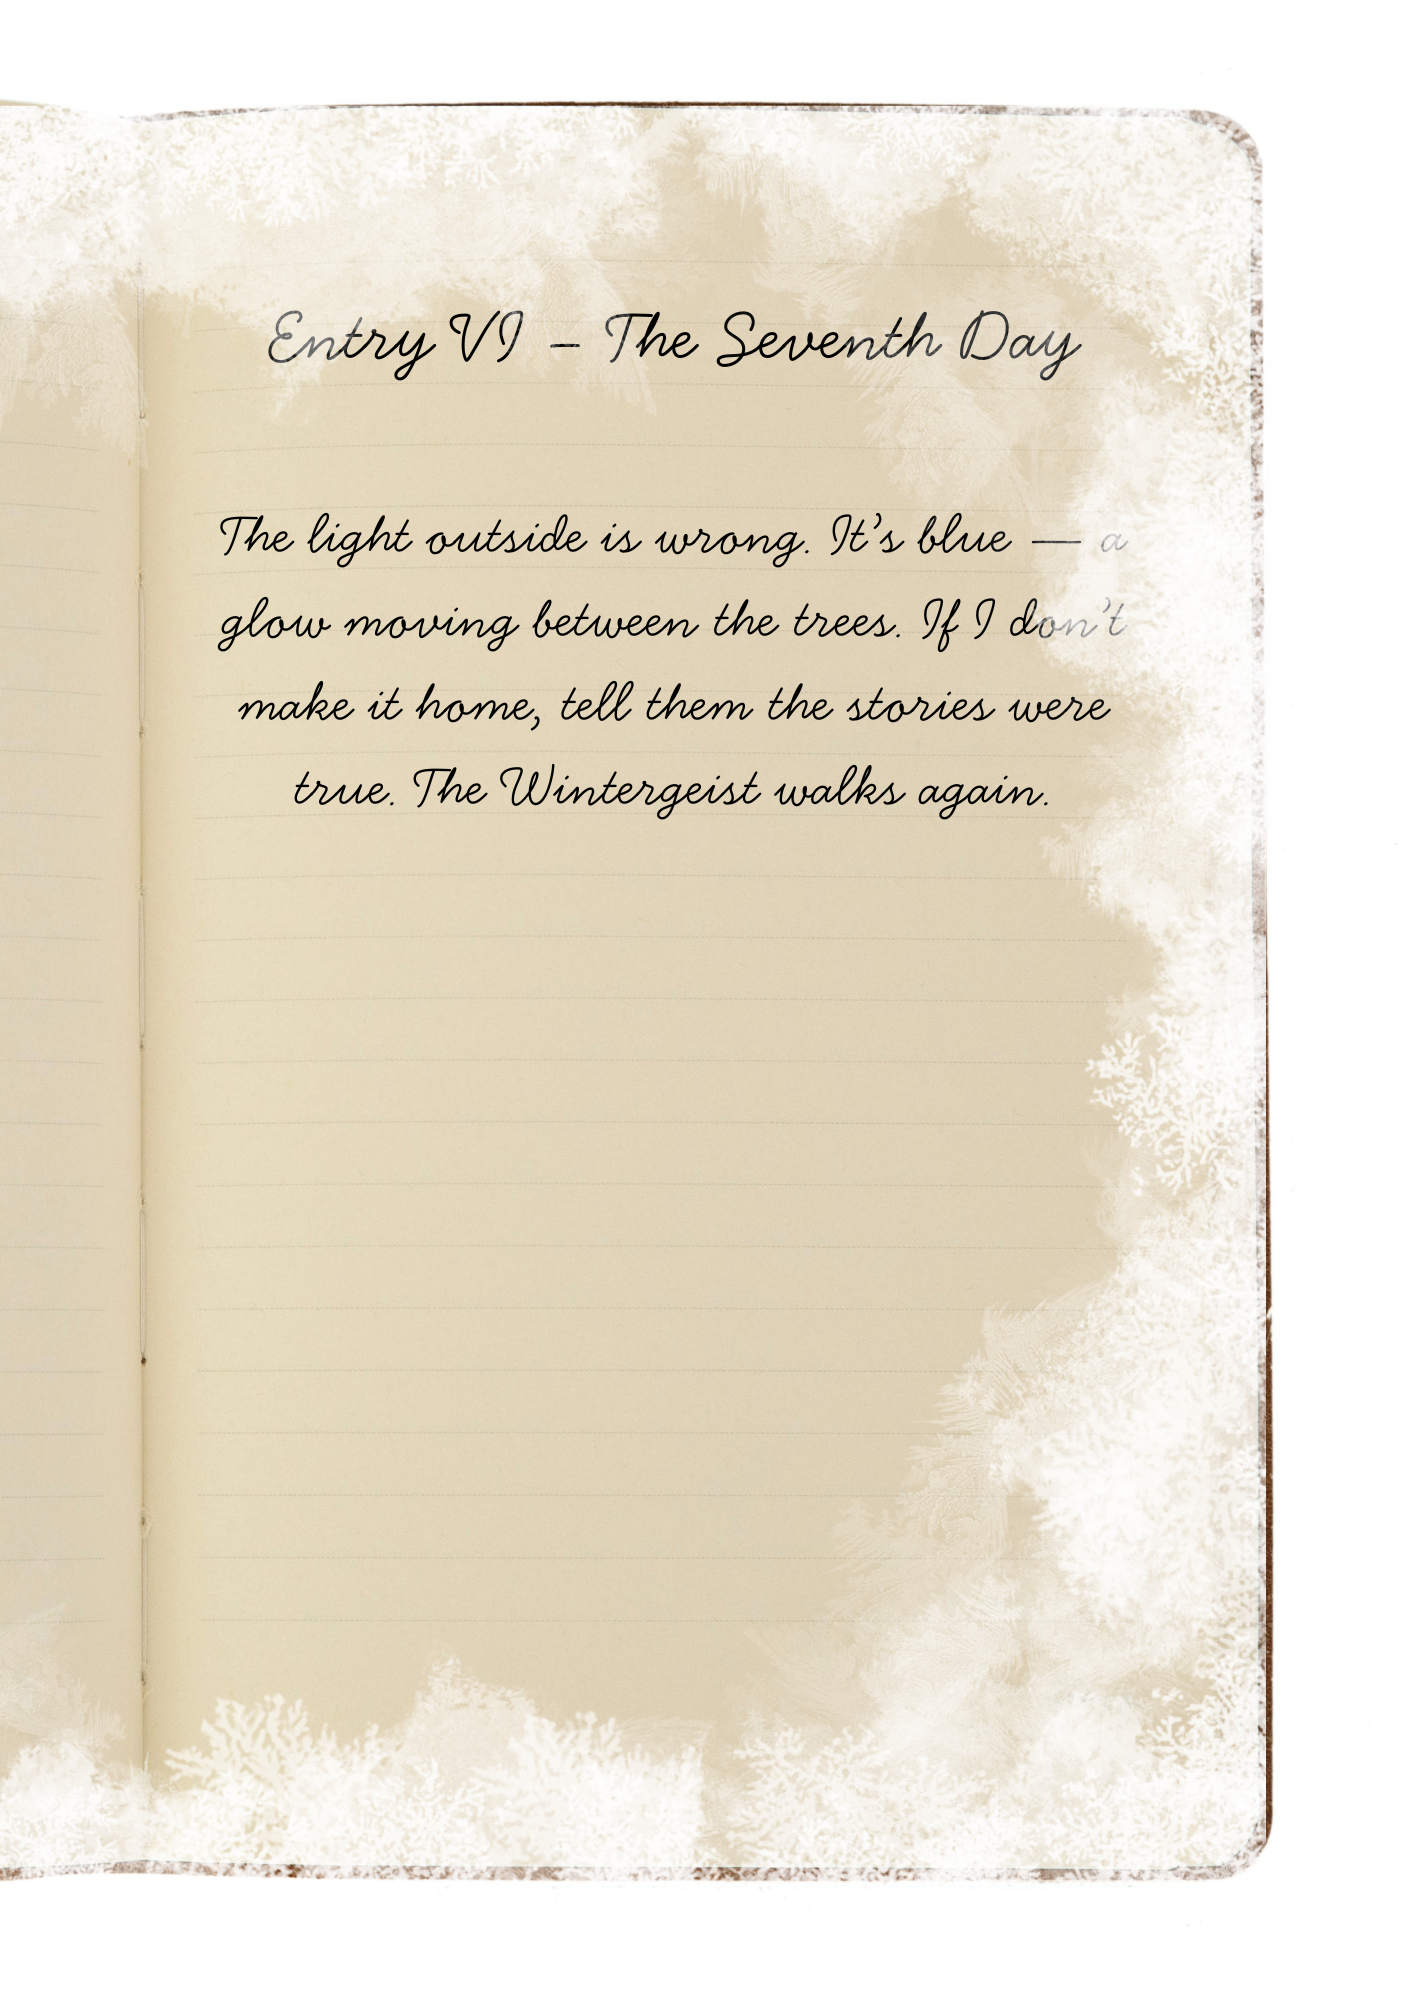 Entry VI – The Seventh Day
The light outside is wrong. It’s blue — a
glow moving between the trees. If I don’t
make it home, tell them the stories were
true. The Wintergeist walks again.